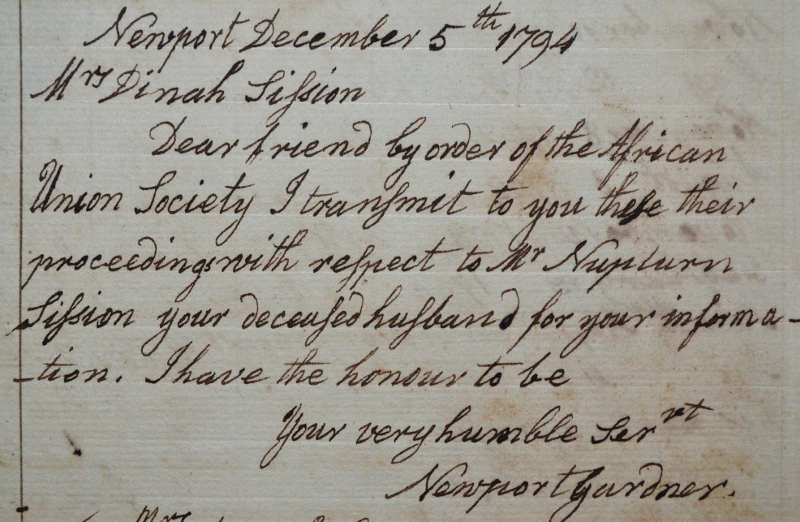 Newport December 5th 1794
Mrs Dinah Sifsion
Dear friend by order of the African
Union Society I tranſmit to you theſe their
proceedings with reſpect to Mr Nupturn
Siſsion your deceaſed huſband for your informa-
-tion. I have the honour to be
Your very humble Servt
Newport Gardner.
Mrs